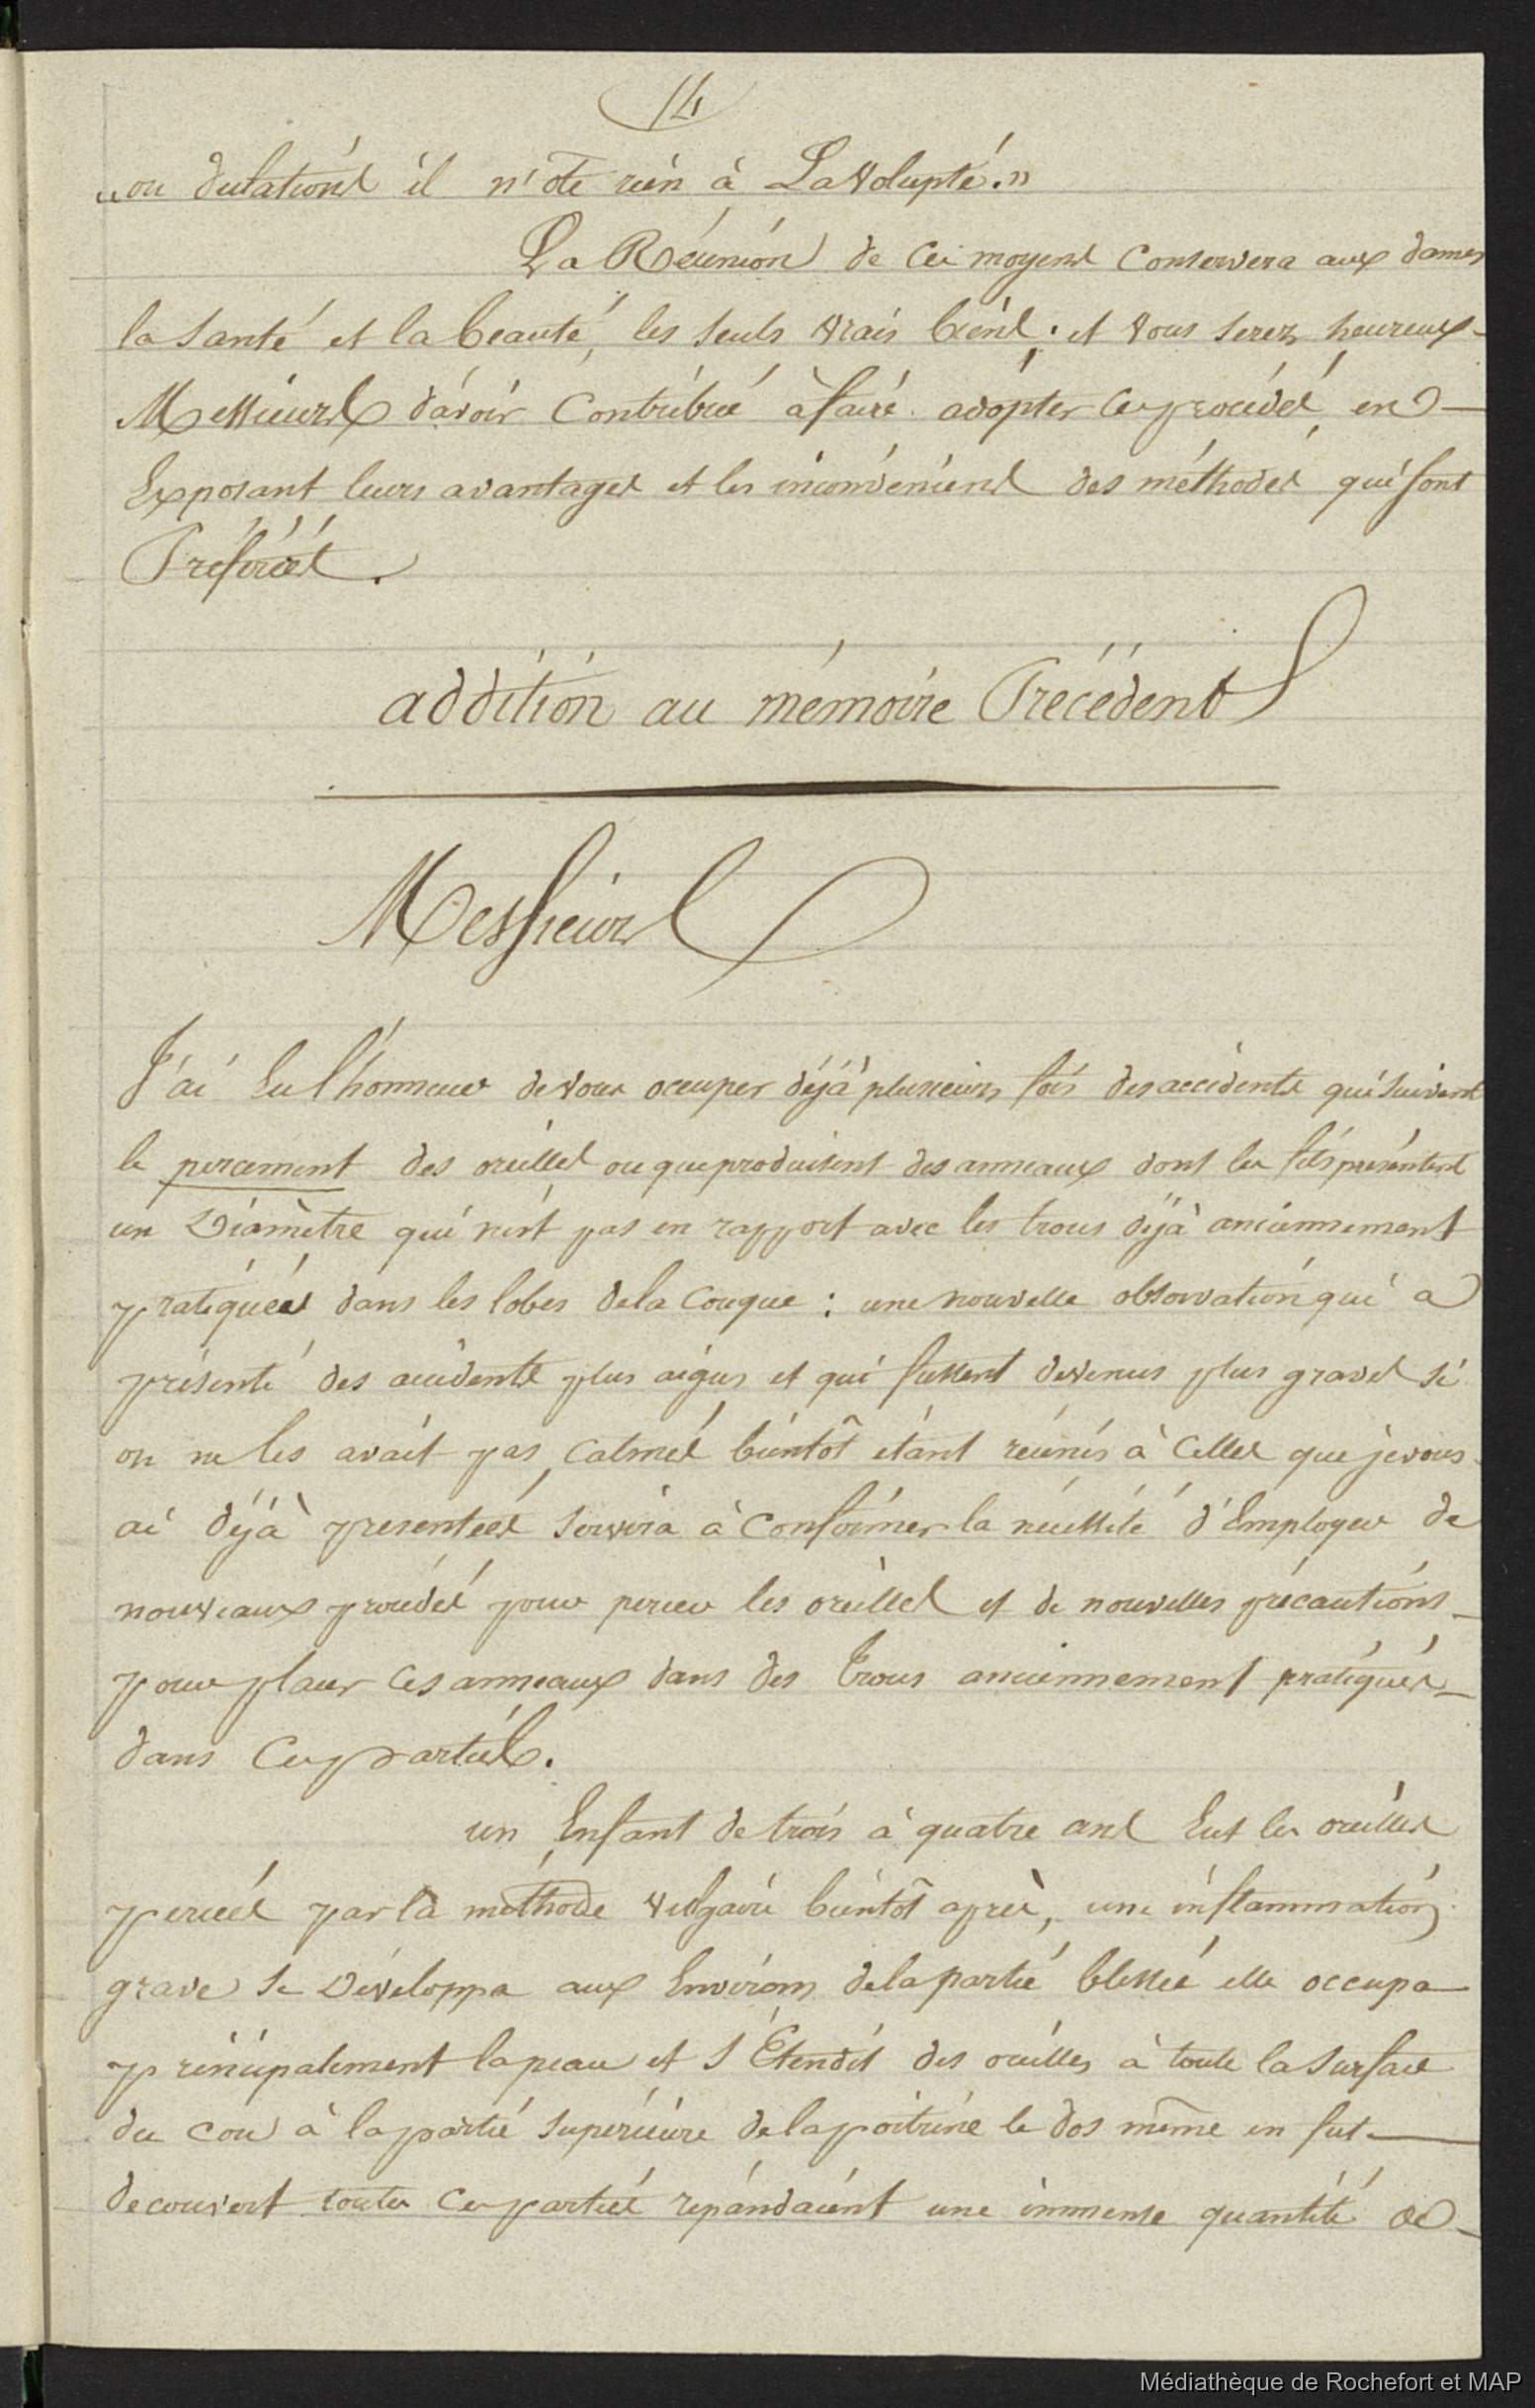 14
"on dulations il n'ote rien à La Volupté."
La Réunion de ces moyens Conservera aux dames
la Santé et la beauté, les Seuls vrais biens : et vous serez heureux
Messieurs d'avoir Contribué à faire adopter ces procédés, en
Exposant leurs avantages et les inconvéniens des méthodes qui sont
Préférées.
addition au mémoire Précédent
Messieurs
J'ai Eu l'honneur de vous occuper déjà plusieurs fois des accidents qui suivent
le percement des oreilles ou que produisent des anneaux dont les fils présentent
un Diamètre qui n'est pas en rapport avec les trous déjà anciennement
pratiquées dans les lobes de la Conque : une nouvelle observation qui a
présenté des accidents plus aigus et qui fussent devenus plus graves si
on ne les avait pas, Calmés bientôt étant réunis à Celles que je vous
ai déjà presentées servira à Confirmer la nécessité d'Employer de
nouveaux procédés pour percer les oreilles et de nouvelles précautions
pour placer ces anneaux dans des trous anciennement pratiqués
dans Ces parties.
un Enfant de trois à quatre ans Eut les oreilles
percées par la méthode vulgaire bientôt après, une inflammation
grave se Développa aux Environs de la partie blessée elle occupa
principalement la peau et s'Etendit des oreilles à toute la Surface
du cou à la partie supérieure de la poitrine le dos même en fut
decouvert toutes Ces parties répandaient une immense quantité de
Médiathèque de Rochefort et MAP